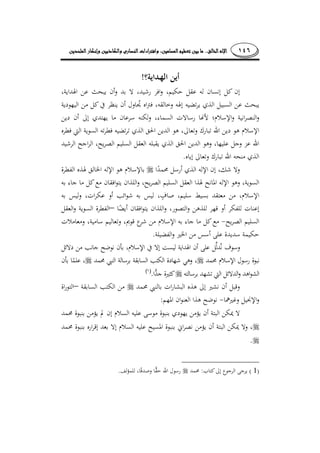 ١٤٦ الإله الخالق.. ما بين تعظيم المسلمين، وافتراءات النصارى واللادينيين وإنكار الملحدين
أين الهداية؟!
إن كل إنسان له عقل حكيم، وفكر رشيد، لا بد وأن يبحث عن الهداية،
يبحث عن السبيل الذي يرتضيه إلهه وخالقه، فتراه يحاول أن ينظر في كل من اليهودية
والنصرانية والإسلام؛ لأنها رسالات السماء، ولكنه سرعان ما يهتدي إلى أن دين
الإسلام هو دين الله تبارك وتعالى، هو الدين الحق الذي ترتضيه فطرته السوية التي فطره
الله عز وجل عليها، وهو الدين الحق الذي يقبله العقل السليم الصريح، الراجح الرشيد
الذي منحه الله تبارك وتعالى إياه.
ولا شك، إن الإله الذي أرسل محمدًا ﷺ بالإسلام هو الإله الخالق لهذه الفطرة
السوية، وهو الإله المانح لهذا العقل السليم الصريح، واللذان يتوافقان مع كل ما جاء به
الإسلام، من معتقد بسيط سليم، صافٍ، ليس به شوائب أو عكرات، وليس به
إعنات للتفكر أو قهر للذهن والتصور، واللذان يتوافقان أيضًا –الفطرة السوية والعقل
السليم الصريح– مع كل ما جاء به الإسلام من شرع قويم، وتعاليم سامية، ومعاملات
حكيمة سديدة على أسس من الخير والفضيلة.
وسوف نُدلّل على أن الهداية ليست إلا في الإسلام، بأن نوضح جانب من دلائل
نبوة رسول الإسلام محمد ﷺ، وهي شهادة الكتب السابقة برسالة النبي محمد ﷺ، علمًا بأن
الشواهد والدلائل التي تشهد برسالته ﷺ كثيرة جدًّا.(١)
وقبل أن نشير إلى هذه البشارات بالنبي محمد ﷺ من الكتب السابقة –التوراة
والإنجيل وغيرهما– نوضح هذا العنوان المهم:
لا يمكن البتة أن يؤمن يهودي بنبوة موسى عليه السلام إن لم يؤمن بنبوة محمد
ﷺ، ولا يمكن البتة أن يؤمن نصراني بنبوة المسيح عليه السلام إلا بعد إقراره بنبوة محمد
ﷺ.
(1 ) يرجى الرجوع إلى كتاب: محمد ﷺ رسول الله حقًّا وصدقًا، للمؤلف.